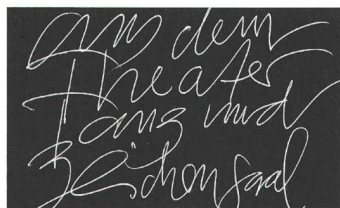 aus dem
Theater
Tanz und
Zeichensaal